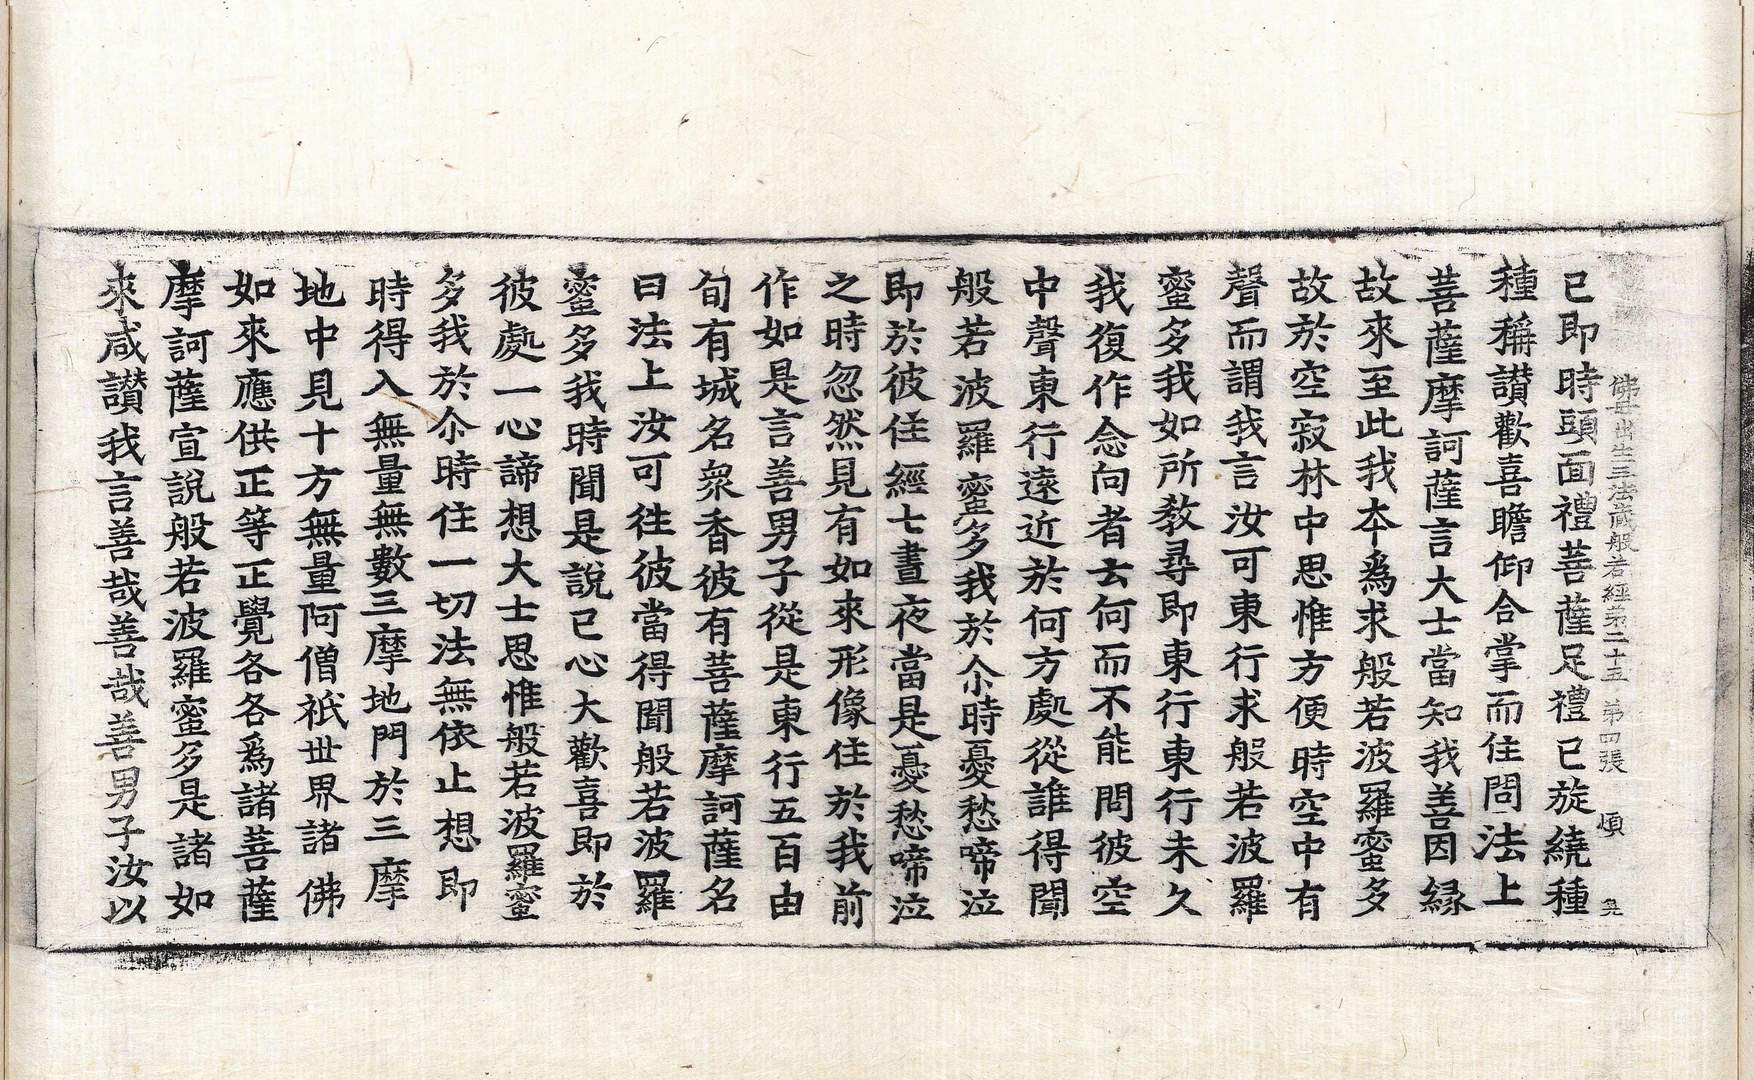 佛母出生三法藏般若經第二十五 第四張 傾
已即時頭面禮菩薩足禮已旋繞種
種稱讃歡喜瞻仰合掌而住問法上
菩薩摩訶薩言大士當知我善因緣
故來至此我夲爲求般若波羅蜜多
故於空寂林中思惟方便時空中有
聲而謂我言汝可東行求般若波羅
蜜多我如所教尋即東行東行未久
我復作念向者云何而不能問彼空
中聲東行遠近於何方處從誰得聞
般若波羅蜜多我於尒時憂愁啼泣
即於彼住經七晝夜當是憂愁啼泣
之時忽然見有如來形像住於我前
作如是言善男子從是東行五百由
旬有城名衆香彼有菩薩摩訶薩名
曰法上汝可徃彼當得聞般若波羅
蜜多我時聞是說已心大歡喜即於
彼處一心諦想大士思惟般若波羅蜜
多我於尒時住一切法無依止想即
時得入無量無數三摩地門於三摩
地中見十方無量阿僧祇世界諸佛
如來應供正等正覺各各爲諸菩薩
摩訶薩宣說般若波羅蜜多是諸如
來咸讃我言善哉善哉善男子汝以